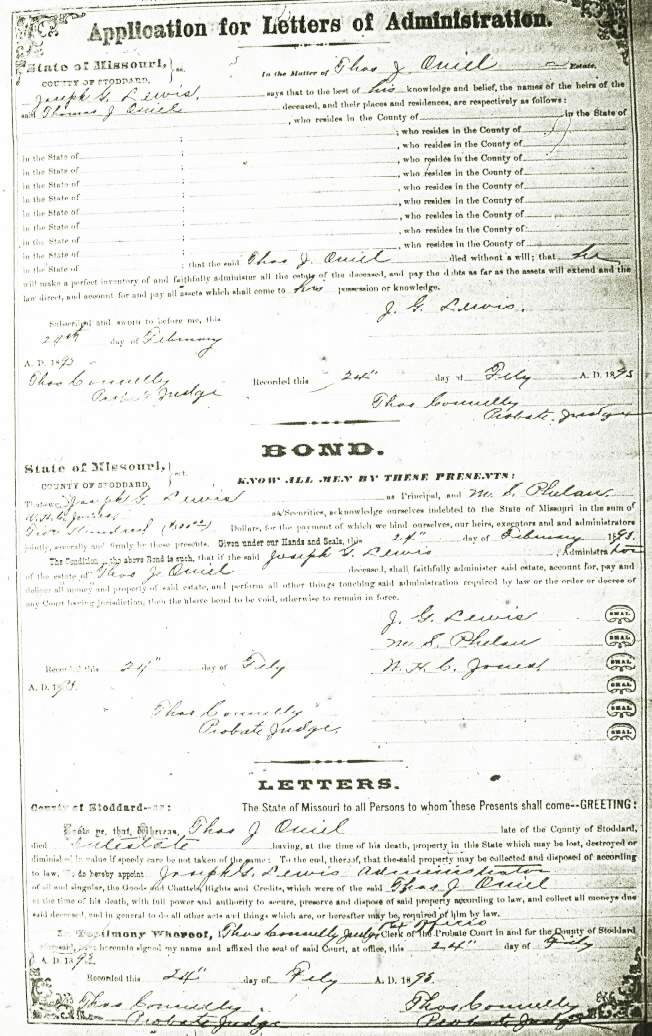 Application for Letters of Administration.
State of Missouri, } ss.
COUNTY OF STODDARD,
In the Matter of Thos J Oniel Estate.
Joseph G. Lewis. says that to the best of his knowledge and belief, the names of the heirs of the
said Thomas J Oniel deceased, and their places and residences, are respectively as follows:
, who resides in the County of in the State of
; who resides in the County of
in the State of ; , who resides in the County of
in the State of ; , who resides in the County of
in the State of ; , who resides in the County of
in the State of ; , who resides in the County of
in the State of ; , who resides in the County of
in the State of ; , who resides in the County of
in the State of ; , who resides in the County of
in the State of ; , who resides in the County of
in the State of ; that the said Thos J. Oniel died without a will; that he
will make a perfect inventory of and faithfully administer all the estate of the deceased, and pay the debts as far as the assets will extend and the
law direct, and account for and pay all assets which shall come to his possession or knowledge.
J. G. Lewis.
Subscribed and sworn to before me, this
24th day of February
A. D. 1893
Thos Connelly
Probate Judge
Recorded this 24" day of Feby A. D. 1893
Thos Connelly
Probate Judge
BOND.
State of Missouri, } ss.
COUNTY OF STODDARD,
KNOW ALL MEN BY THESE PRESENTS:
That we Joseph G. Lewis as Principal, and M. S. Phelan
W. H. C. Jones as Securities, acknowledge ourselves indebted to the State of Missouri in the sum of
Hundred Dollars, for the payment of which we bind ourselves, our heirs, executors and administrators
jointly, severally and firmly by these presents. Given under our Hands and Seals, this 24" day of February 1893.
The Condition of the above Bond is such, that if the said Joseph G. Lewis Administrator
of the estate of Thos J Oniel deceased, shall faithfully administer said estate, account for, pay and
deliver all money and property of said estate, and perform all other things touching said administration required by law or the order or decree of
any Court having jurisdiction, then the above bond to be void, otherwise to remain in force.
J. G. Lewis SEAL
M. S. Phelan SEAL
Recorded this 24" day of Feby W. H. C. Jones. SEAL
A. D. 1893. SEAL
Thos Connelly SEAL
Probate Judge. SEAL
LETTERS.
County of Stoddard--ss: The State of Missouri to all Persons to whom these Presents shall come--GREETING:
Know ye, that, Whereas, Thos J Oniel late of the County of Stoddard,
died Intestate having, at the time of his death, property in this State which may be lost, destroyed or
diminished in value if speedy care be not taken of the same: To the end, thereof, that the said property may be collected and disposed of according
to law, We do hereby appoint Joseph G. Lewis administrator
of all and singular, the Goods and Chattels, Rights and Credits, which were of the said Thos J Oniel
at the time of his death, with full power and authority to secure, preserve and dispose of said property according to law, and collect all moneys due
said deceased, and in general to do all other acts and things which are, or hereafter may be, required of him by law.
In Testimony Whereof, I Thos Connelly Judge & Ex officio Clerk of the Probate Court in and for the County of Stoddard
aforesaid, have hereunto signed my name and affixed the seal of said Court, at office, this 24" day of Feby
A. D. 1893
Recorded this 24" day of Feby A. D. 1893.
Thos Connelly Thos Connelly
Probate Judge Probate Judge